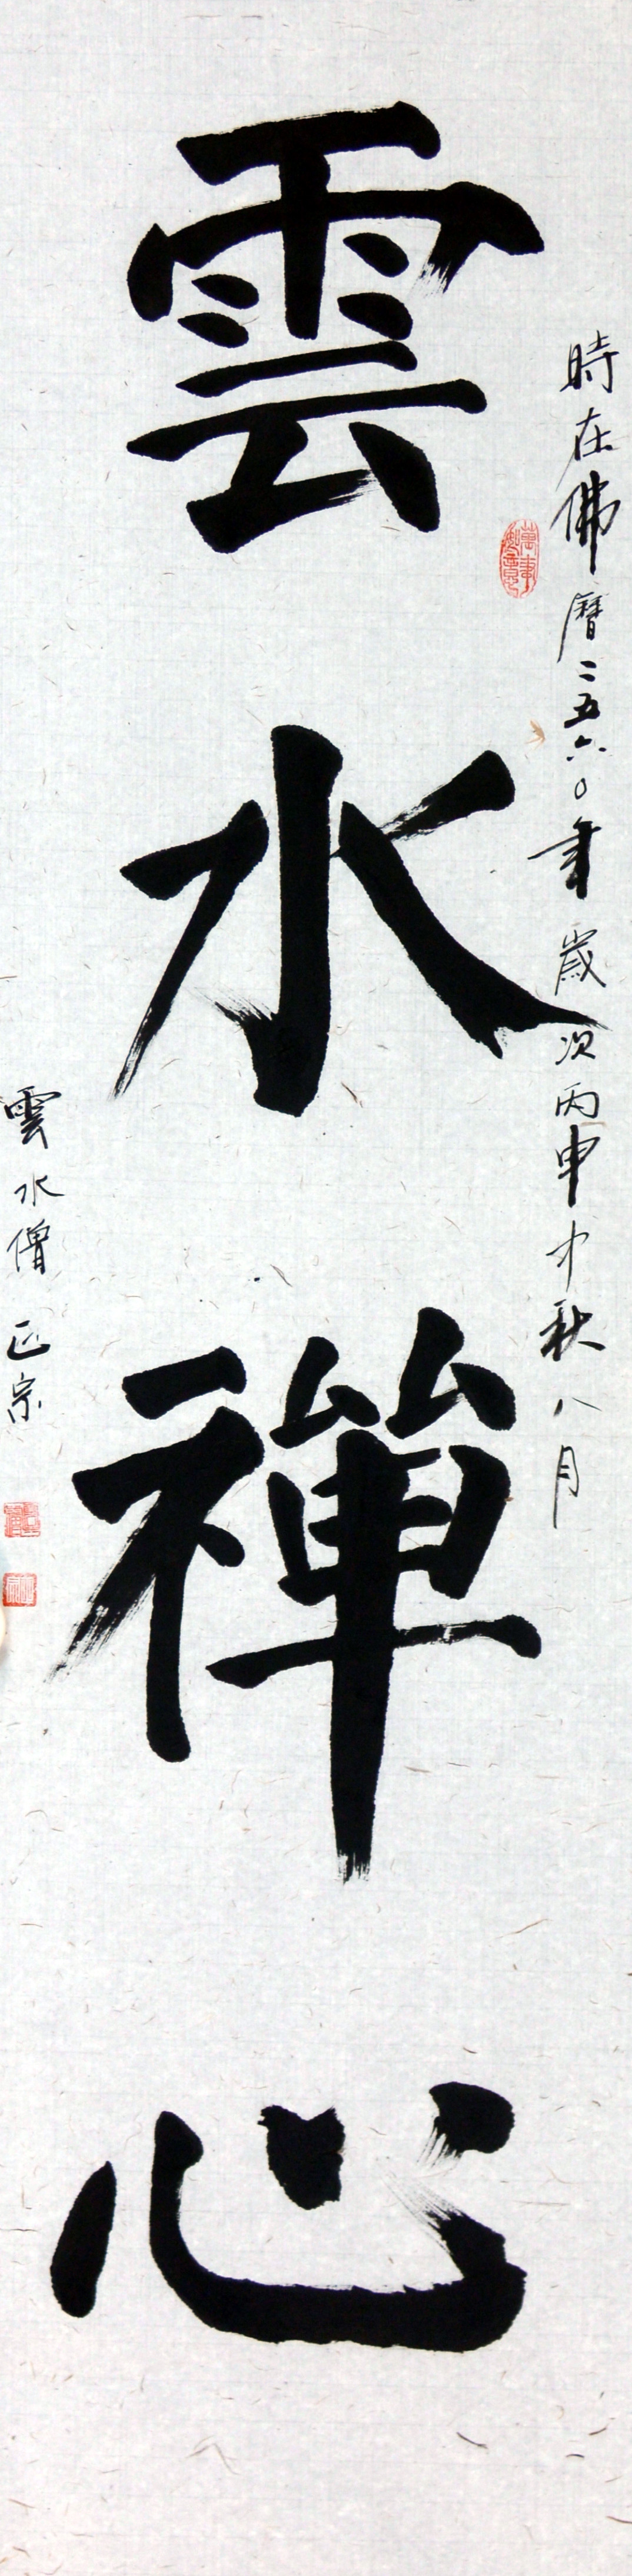 時在佛曆二五六〇年歲次丙申中秋八月
雲水禪心
雲水僧 正宗
萬事如意